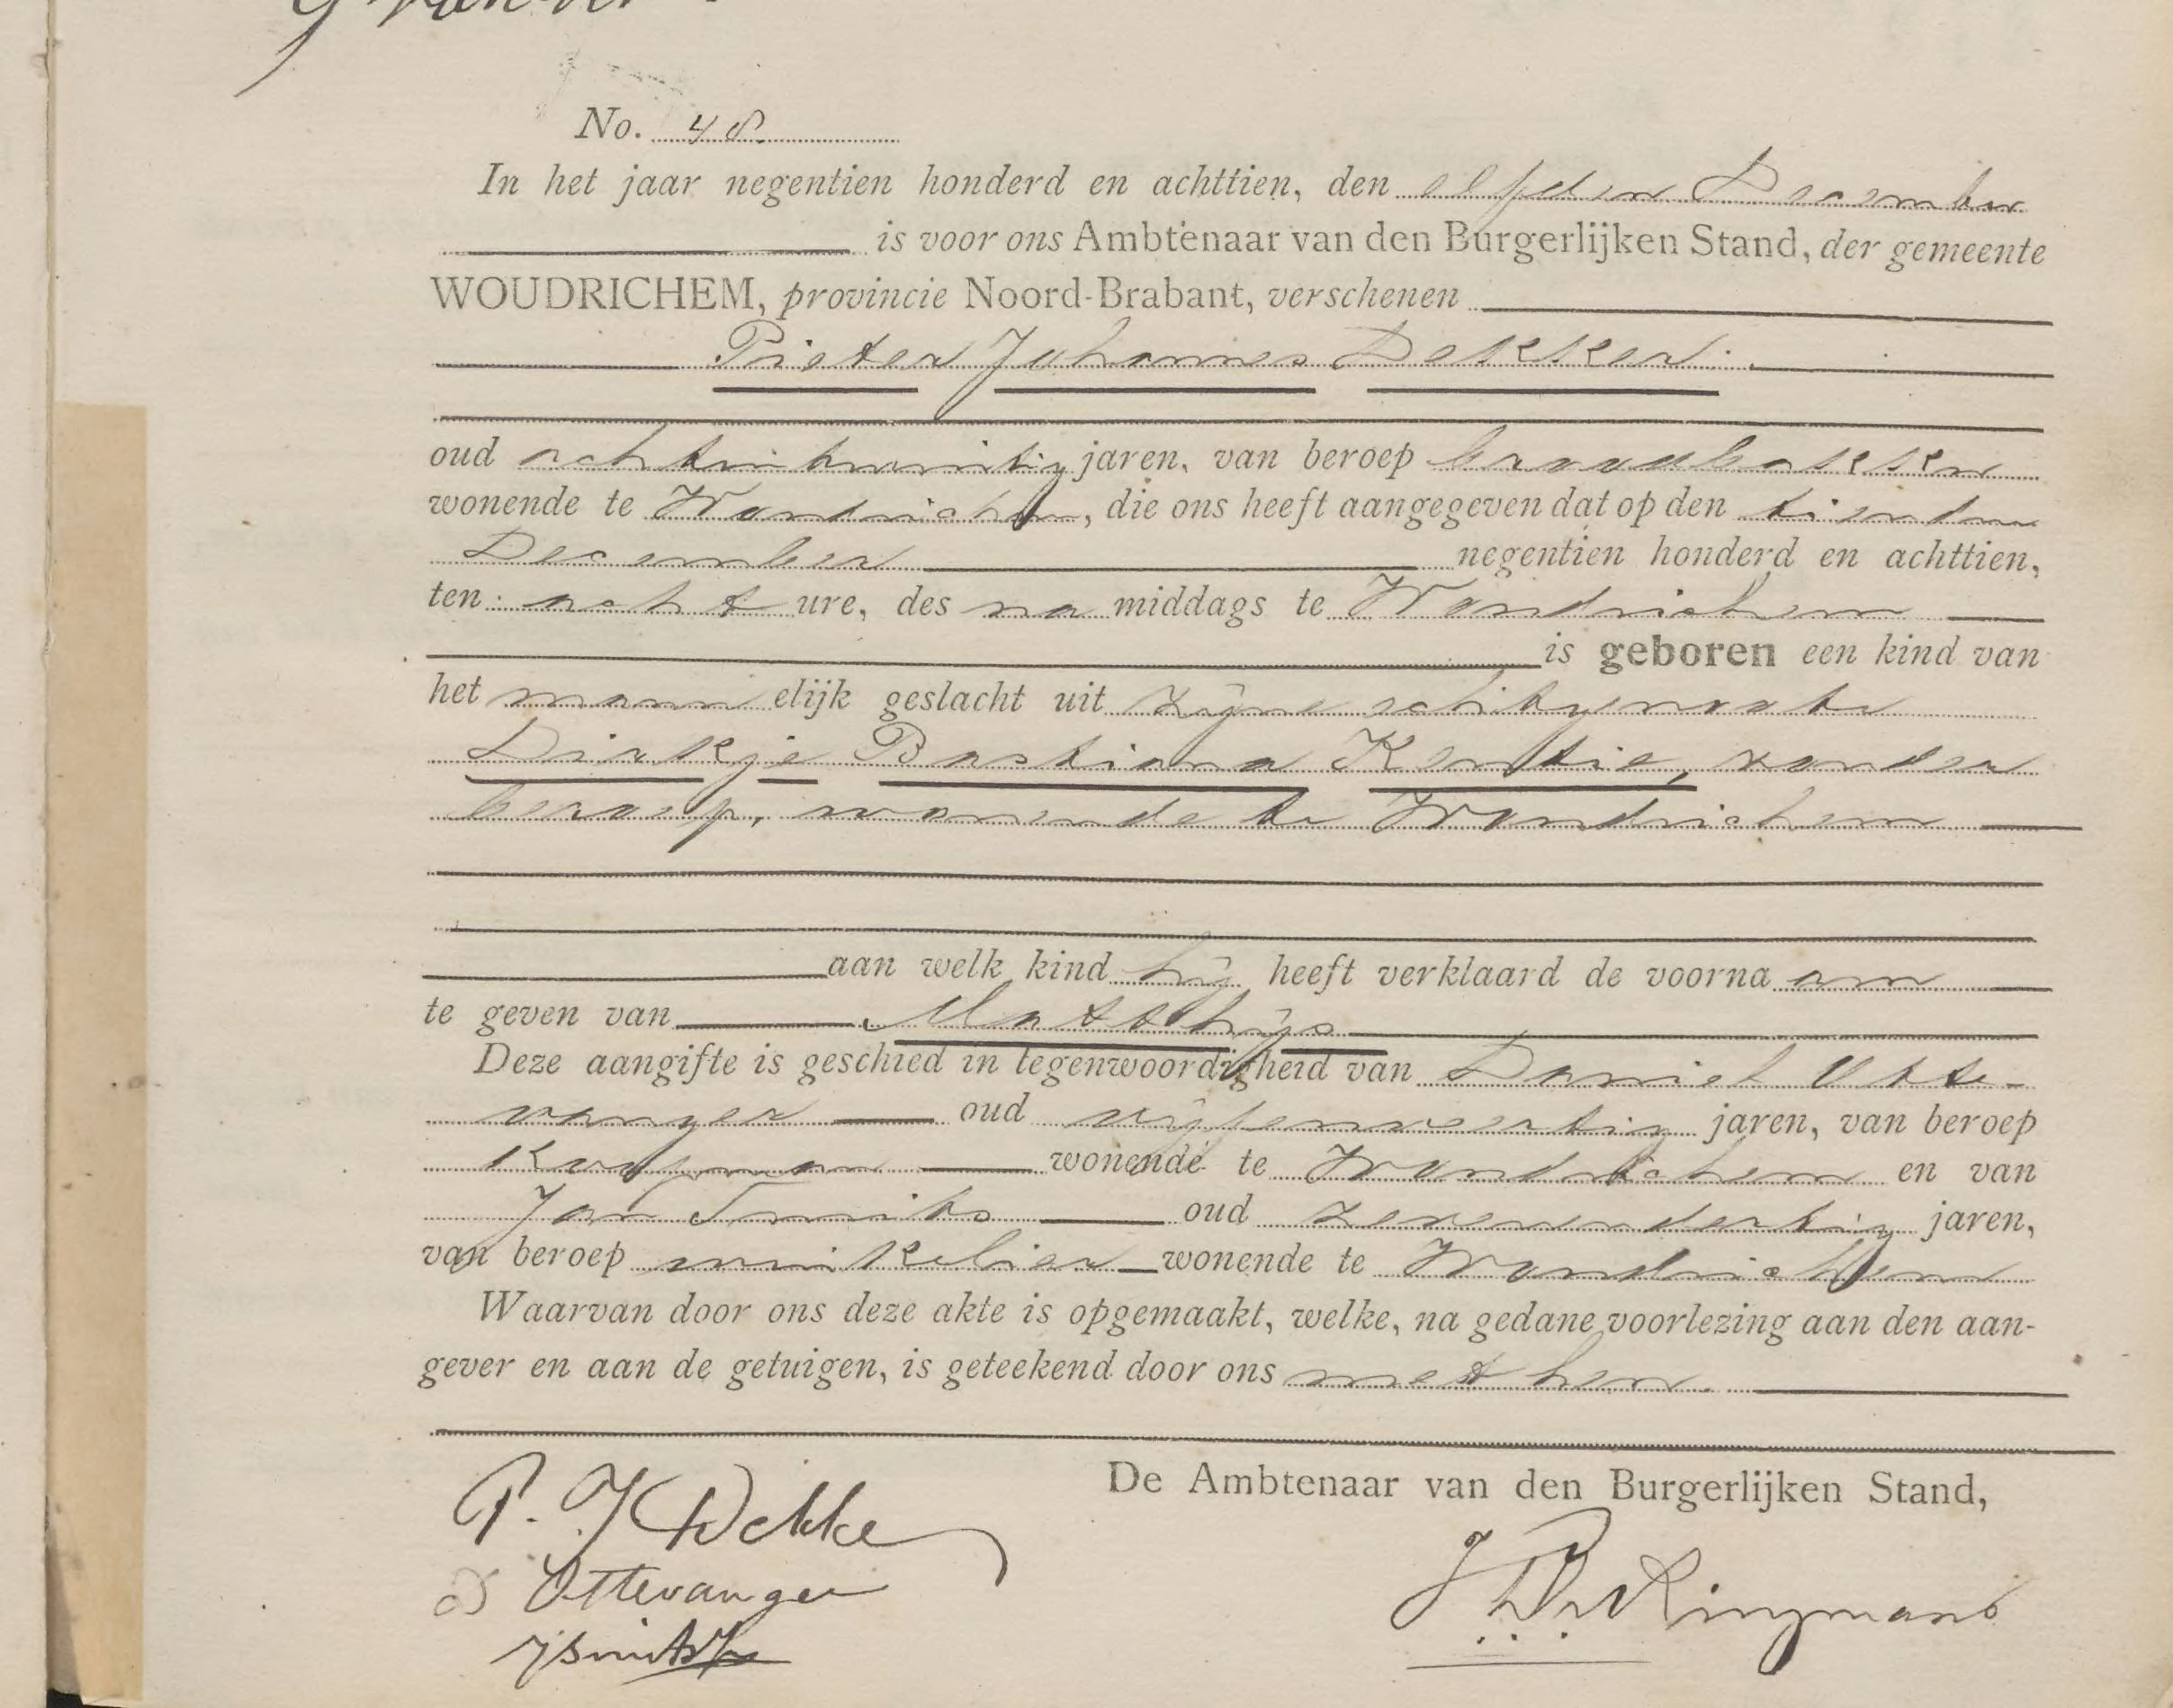 No. 48.
In het jaar negentien honderd en achttien, den elfden December
is voor ons Ambtenaar van den Burgerlijken Stand, der gemeente
WOUDRICHEM, provincie Noord-Brabant, verschenen
Pieter Johannes Dekker.
oud achtentwintig jaren, van beroep broodbakker
wonende te Woudrichem, die ons heeft aangegeven dat op den tienden
December negentien honderd en achttien,
ten acht ure, des na middags te Woudrichem
is geboren een kind van
het mann elijk geslacht uit zijne echtgenoote
Dirkje Bastiana Kentie, zonder
beroep, wonende te Woudrichem
aan welk kind hij heeft verklaard de voorna am
te geven van Matthijs
Deze aangifte is geschied in tegenwoordigheid van Daniel Otte-
vanger oud vijfenveertig jaren, van beroep
Koopman wonende te Woudrichem en van
Jan Smits oud zevenendertig jaren,
van beroep winkelier wonende te Woudrichem
Waarvan door ons deze akte is opgemaakt, welke, na gedane voorlezing aan den aan-
gever en aan de getuigen, is geteekend door ons met hen.
De Ambtenaar van den Burgerlijken Stand,
P. J. Dekker
D Ottevanger
J Smits